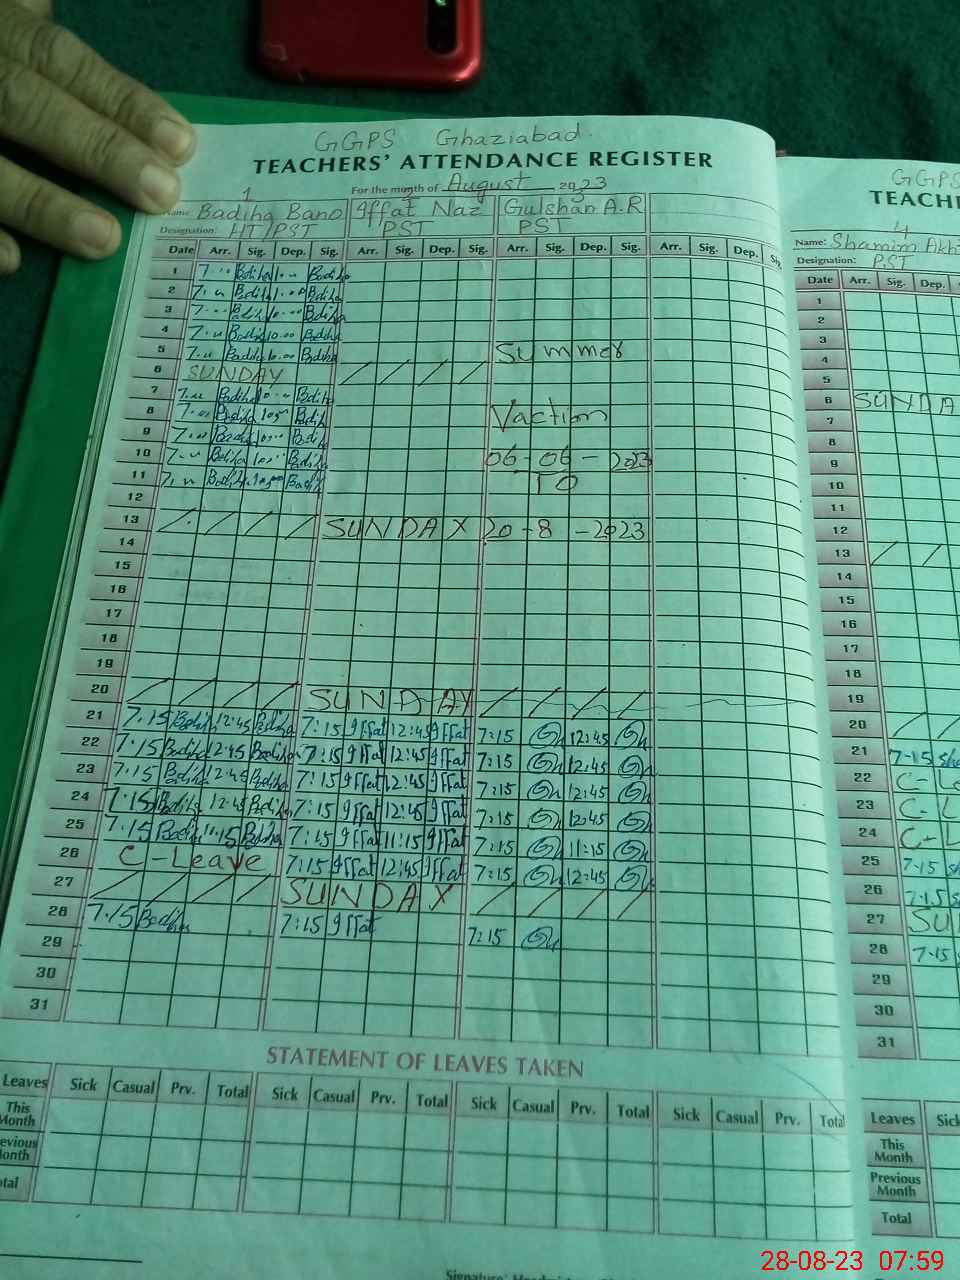 GGPS Ghaziabad.
TEACHERS' ATTENDANCE REGISTER
1
For the month of August 2023
Name: Badiha Bano Iffat Naz Gulshan A.R
Designation: HT/PST PST PST
Date Arr. Sig. Dep. Sig. Arr. Sig. Dep. Sig. Arr. Sig. Dep. Sig. Arr. Sig. Dep. Sig.
1 7. Badiha Badiha
2 7. Badiha Badiha
3 7. Badiha Badiha
4 7. Badiha 10.00 Badiha
5 7. Badiha 10.00 Badiha Summer
6 SUNDAY
7 7. Badiha Badiha
8 7. Badiha Badiha Vaction
9 7. Badiha Badiha
10 7. Badiha Badiha 06-06-2023
11 7. Badiha Badiha TO
12
13 SUNDAY 20-8-2023
14
15
16
17
18
19
20 SUNDAY
21 7.15 Badiha 12:45 Badiha 7:15 Iffat 12:45 Iffat 7:15 12:45
22 7.15 Badiha 12:45 Badiha 7:15 Iffat 12:45 Iffat 7:15 12:45
23 7.15 Badiha 12:45 Badiha 7:15 Iffat 12:45 Iffat 7:15 12:45
24 7.15 Badiha 12:45 Badiha 7:15 Iffat 12:45 Iffat 7:15 12:45
25 7.15 Badiha 11.15 Badiha 7:15 Iffat 11:15 Iffat 7:15 11:15
26 C-Leave 7:15 Iffat 12:45 Iffat 7:15 12:45
27 SUNDAY
28 7.15 Badiha 7:15 Iffat 7:15
29
30
31
STATEMENT OF LEAVES TAKEN
Leaves Sick Casual Prv. Total Sick Casual Prv. Total Sick Casual Prv. Total Sick Casual Prv. Total
This Month
evious Month
tal
GGPS
TEACH
4
Name: Shamim Akh
Designation: PST
Date Arr. Sig. Dep.
1
2
3
4
5
6 SUNDA
7
8
9
10
11
12
13
14
15
16
17
18
19
20
21 7-15 Sh
22 C-Le
23 C-L
24 C-L
25 7-15 sh
26 7.15 s
27 SU
28 7-15 s
29
30
31
Leaves Sick
This Month
Previous Month
Total
28-08-23 07:59